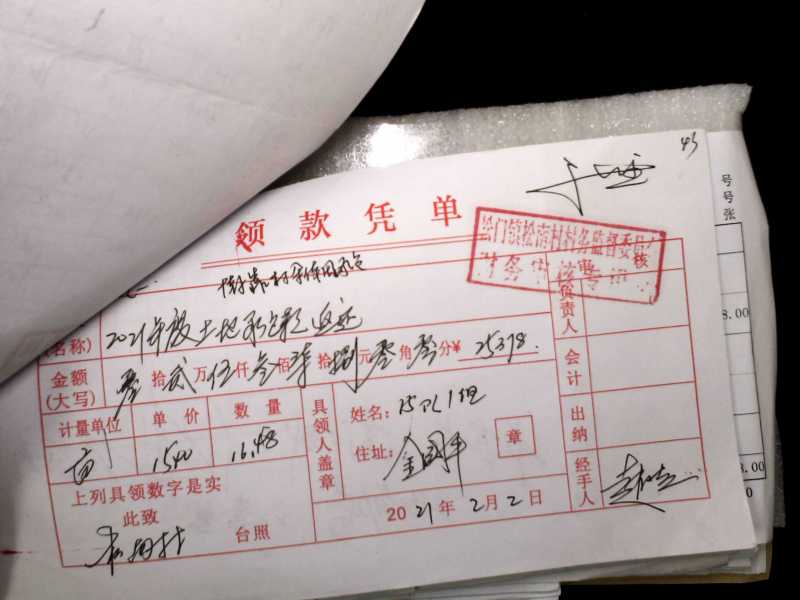 45
领款凭单
松门镇松南村村务监督委员会
财务审
核
2021年度土地承包款
名称)
负责人
金额
(大写)
零拾贰万伍仟叁佰柒拾捌元零角零分¥25378.
会计
计量单位 单价 数量
具领人盖章
姓名:15队1组
出纳
亩 1540 16.48
住址:金国平
章
上列具领数字是实
经手人
此致
2021年2月2日
台照
号
号
张
8.00
8.00
0